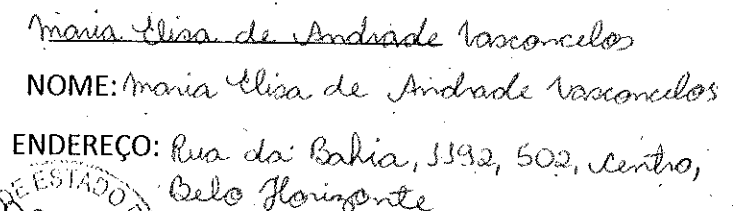 Maria Elisa de Andrade Vasconcelos
NOME: Maria Elisa de Andrade Vasconcelos
ENDEREÇO: Rua da Bahia, 1192, 502, centro,
Belo Horizonte
DE ESTADO